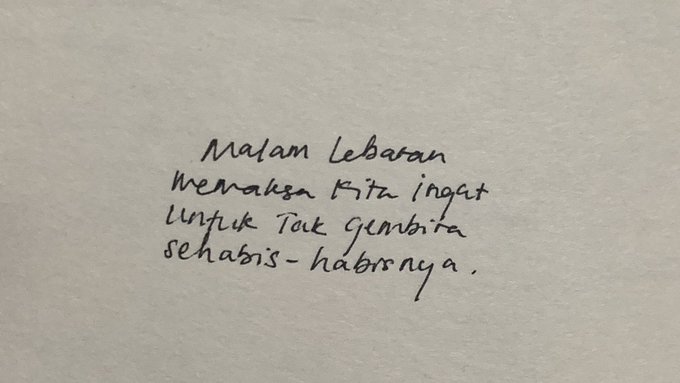 Malam Lebaran
memaksa kita ingat
untuk Tak gembira
sehabis-habisnya.